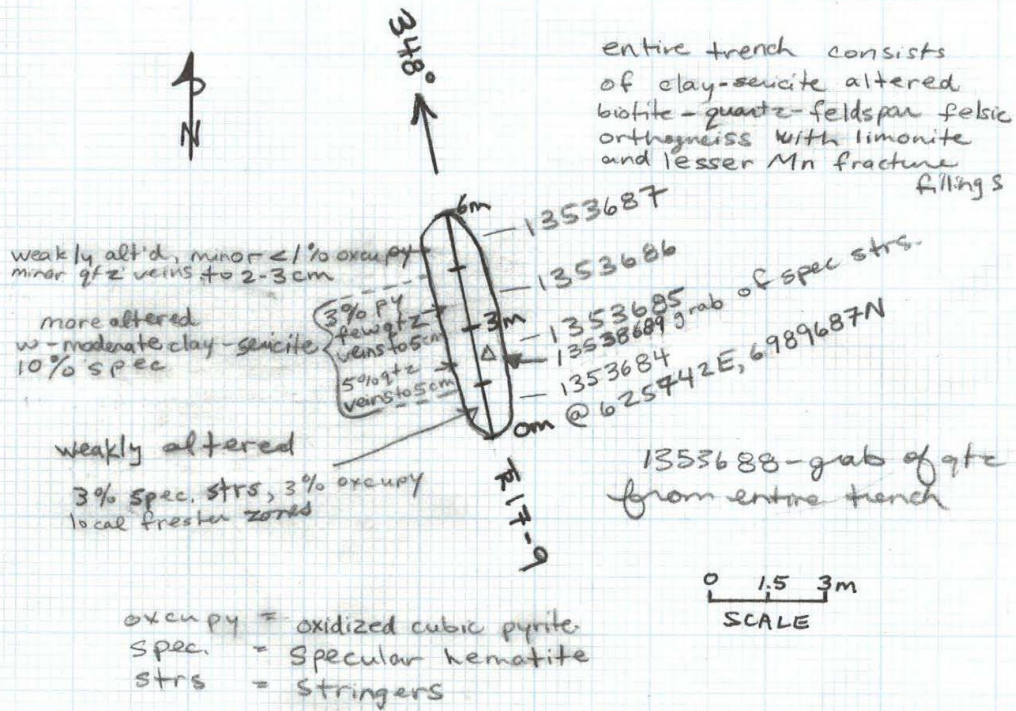 348°
N
entire trench consists
of clay-sericite altered
biotite-quartz-feldspar felsic
orthogneiss with limonite
and lesser Mn fracture
fillings
6m
1353687
weakly alt'd, minor <1% oxcupy
minor qtz veins to 2-3cm
1353686
3% py
few qtz
veins to 5cm
3m
1353685
13538689 grab of spec strs.
more altered
w-moderate clay-sericite
10% spec
5% qtz
veins to 5cm
1353684
0m @ 625742E, 6989687N
weakly altered
3% spec. strs, 3% oxcupy
local fresher zones
1353688-grab of qtz
from entire trench
TR17-9
0 1.5 3m
SCALE
oxcupy = oxidized cubic pyrite
spec. = specular hematite
strs = stringers